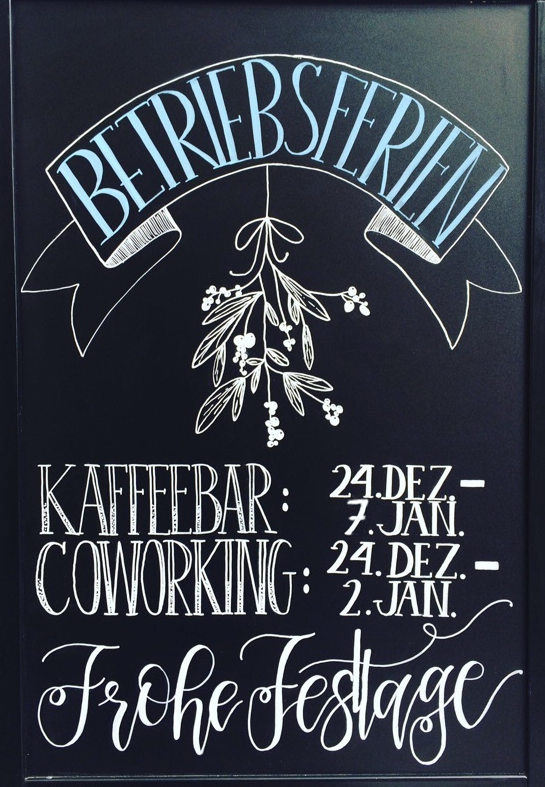 BETRIEBSFERIEN
KAFFEEBAR: 24. DEZ. –
7. JAN.
COWORKING: 24. DEZ. –
2. JAN.
Frohe Festtage